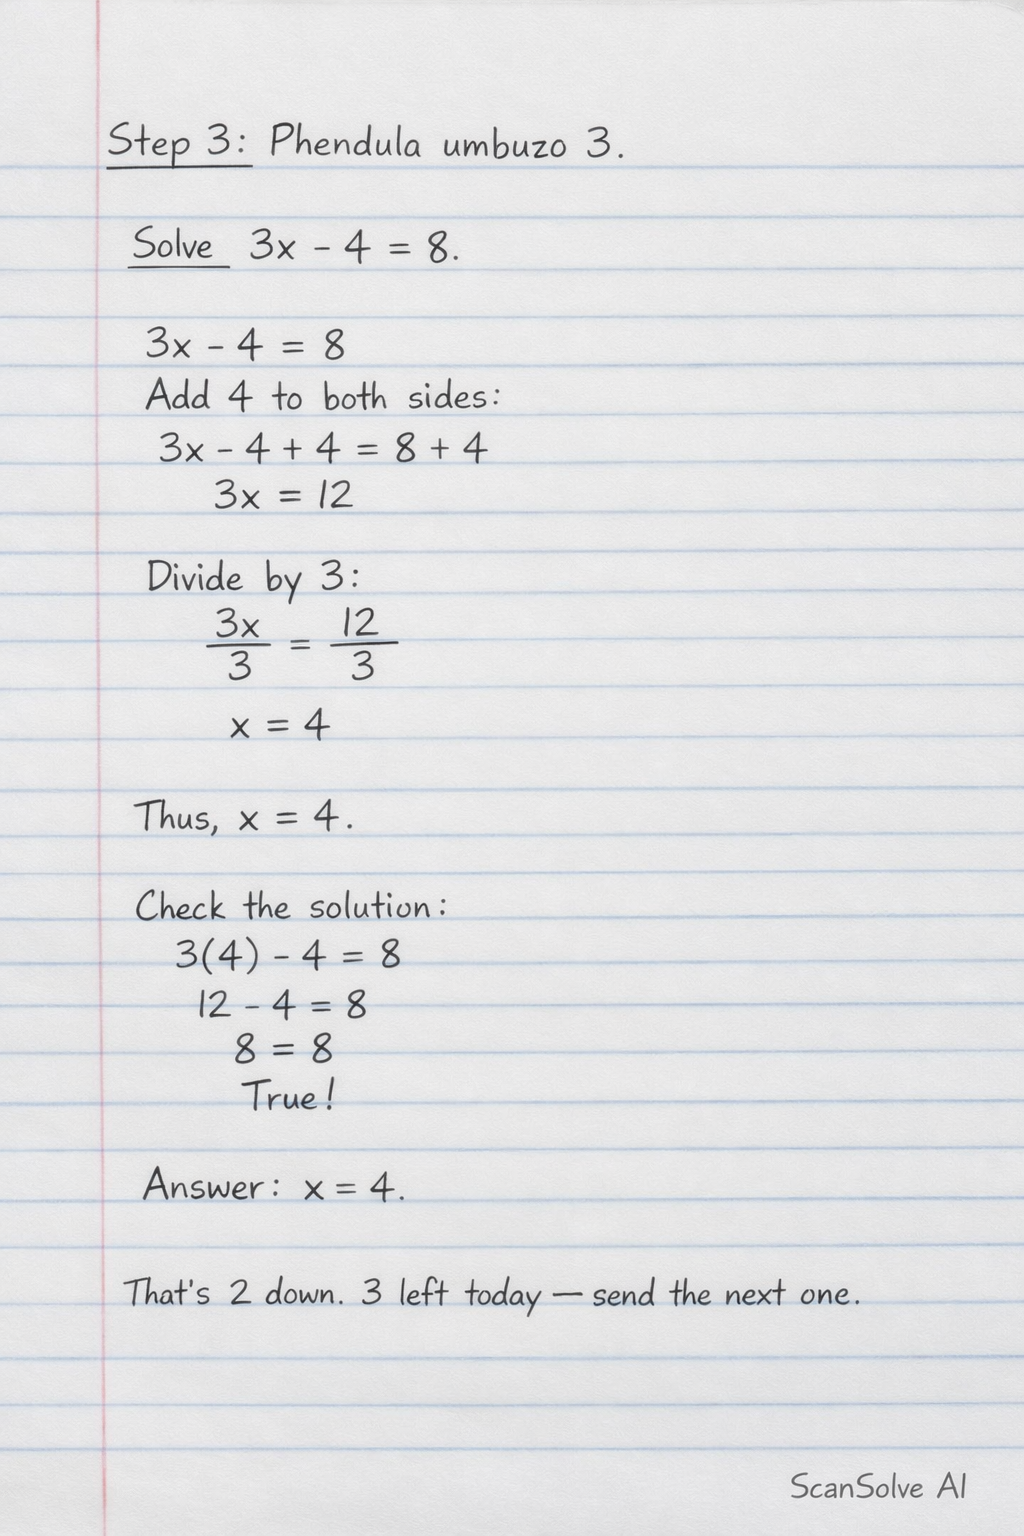 Step 3: Phendula umbuzo 3.
Solve 3x - 4 = 8.
3x - 4 = 8
Add 4 to both sides:
3x - 4 + 4 = 8 + 4
3x = 12
Divide by 3:
3x/3 = 12/3
x = 4
Thus, x = 4.
Check the solution:
3(4) - 4 = 8
12 - 4 = 8
8 = 8
True!
Answer: x = 4.
That's 2 down. 3 left today — send the next one.
ScanSolve AI